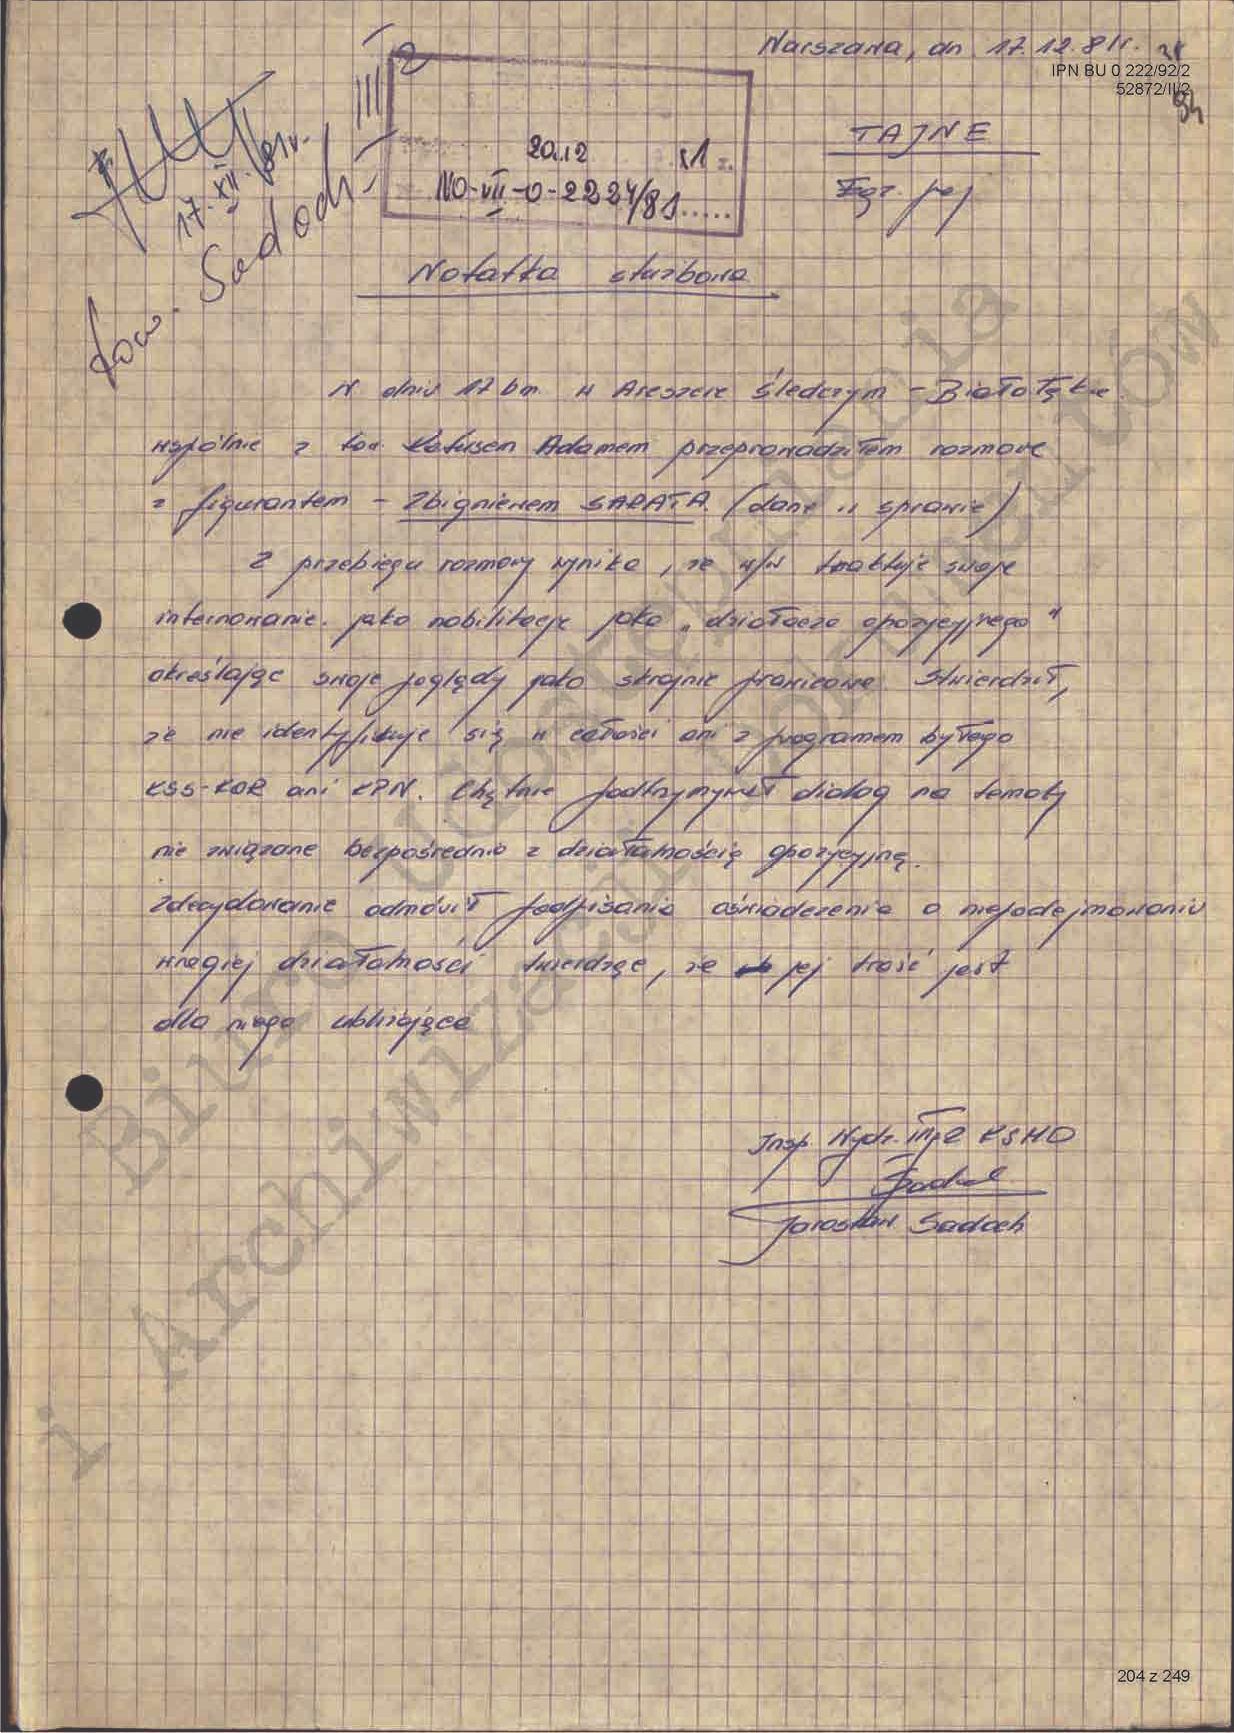 Warszawa, dn. 17.12.81r.
IPN BU 0 222/92/2
52872/II/2
94
TAJNE
Egz. poj
20.12 81
WO-VII-0-2224/81.....
17.XII.81r.
Tow. Sadoch
Notatka służbowa
W dniu 17 bm. w Areszcie Śledczym - Białołęka
wspólnie z tow. Adamem przeprowadziłem rozmowę
z figurantem - Zbigniewem SARATA. (dane w sprawie)
Z przebiegu rozmowy wynika, że w/w traktuje swoje
internowanie. jako nobilitację jako „działacza opozycyjnego"
określając swoje poglądy jako skrajnie prawicowe. Stwierdził,
że nie identyfikuje się w całości ani z programem byłego
KSS-KOR ani KPN. Chętnie podtrzymywał dialog na tematy
nie związane bezpośrednio z działalnością opozycyjną.
Zdecydowanie odmówił podpisania oświadczenia o niepodejmowaniu
wrogiej działalności twierdząc, że jej treść jest
dla niego ubliżająca
Insp. Wydz. III-2 KSMO
Jarosław Sadoch
Biuro Udostępniania
i Archiwizacji Dokumentów
204 z 249